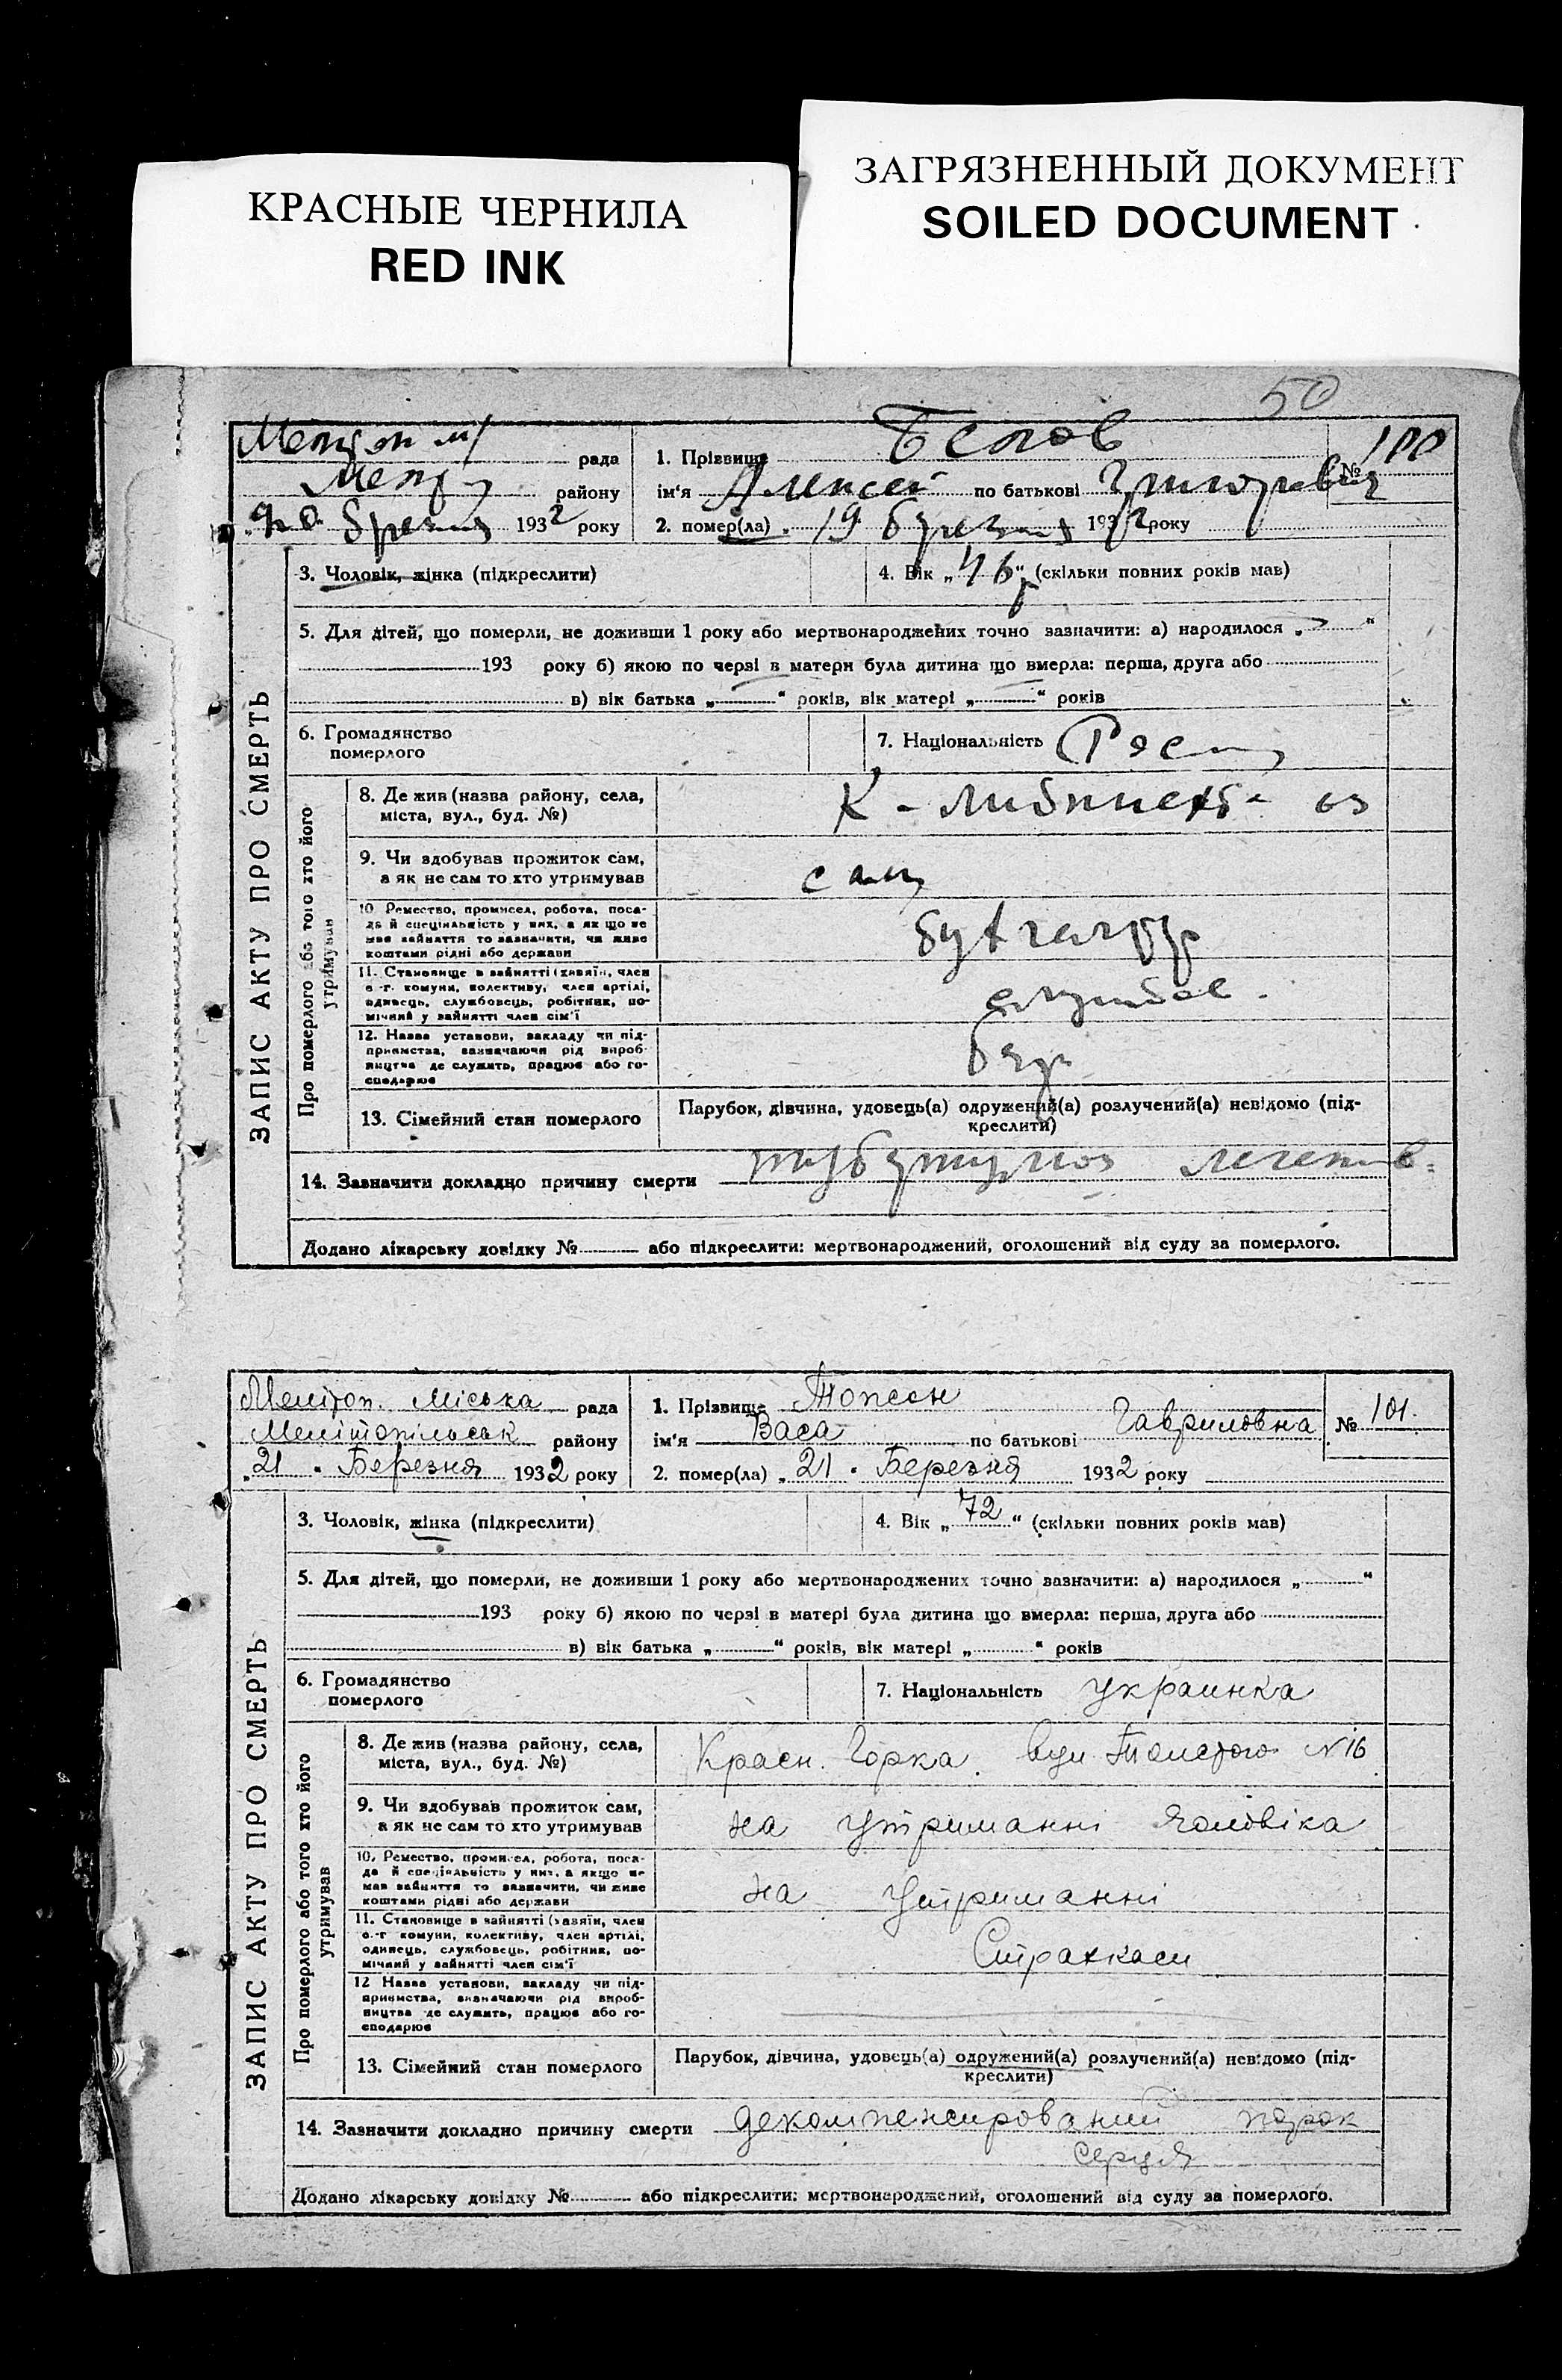 КРАСНЫЕ ЧЕРНИЛА
RED INK
ЗАГРЯЗНЕННЫЙ ДОКУМЕНТ
SOILED DOCUMENT
50
рада
району
1932 року
1. Прізвище Белов
ім'я Алексей по батькові Григорович
№ 100
2. помер(ла) 19 березня 1932 року
ЗАПИС АКТУ ПРО СМЕРТЬ
3. Чоловік, жінка (підкреслити)
4. Вік „46" (скільки повних років мав)
5. Для дітей, що померли, не доживши 1 року або мертвонароджених точно зазначити: а) народилося „ "
193 року б) якою по черзі в матери була дитина що вмерла: перша, друга або
в) вік батька „ " років, вік матері „ " років
6. Громадянство
померлого
7. Національність
Про померлого або того хто його
утримував
8. Де жив (назва району, села,
міста, вул., буд. №)
9. Чи здобував прожиток сам,
а як не сам то хто утримував
сам
10. Ремество, промисел, робота, поса-
да й спеціяльність у них, а як що не
мав зайняття то зазначити, чи живе
коштами рідні або держави
11. Становище в зайнятті (хазяїн, член
с.-г. комуни, колективу, член артілі,
одинець, службовець, робітник, по-
мічний у зайнятті член сім'ї
12. Назва установи, закладу чи під-
приємства, зазначаючи рід вироб-
ництва де служить, працює або го-
сподарює
13. Сімейний стан померлого
Парубок, дівчина, удовець(а) одружений(а) розлучений(а) невідомо (під-
креслити)
14. Зазначити докладно причину смерти туберкульоз легенів
Додано лікарську довідку № або підкреслити: мертвонароджений, оголошений від суду за померлого.
Меліton. Міська рада
Мелітопільськ району
„21" Березня 1932 року
1. Прізвище
ім'я Васа по батькові Гавриловна
№ 101.
2. помер(ла) „21" Березня 1932 року
ЗАПИС АКТУ ПРО СМЕРТЬ
3. Чоловік, жінка (підкреслити)
4. Вік „72" (скільки повних років мав)
5. Для дітей, що померли, не доживши 1 року або мертвонароджених точно зазначити: а) народилося „ "
193 року б) якою по черзі в матері була дитина що вмерла: перша, друга або
в) вік батька „ " років, вік матері „ " років
6. Громадянство
померлого
7. Національність украинка
Про померлого або того хто його
утримував
8. Де жив (назва району, села,
міста, вул., буд. №)
Красн. Горка. вул. Толстого N 16
9. Чи здобував прожиток сам,
а як не сам то хто утримував
на утриманні чоловіка
10. Ремество, промисел, робота, поса-
да й спеціяльність у них, а якщо не
мав зайняття то зазначити, чи живе
коштами рідні або держави
на утриманні
11. Становище в зайнятті (хазяїн, член
с.-г комуни, колективу, член артілі,
одинець, службовець, робітник, по-
мічний у зайнятті член сім'ї
Страхкаси
12 Назва установи, закладу чи під-
приємства, зазначаючи рід вироб-
ництва де служить, працює або го-
сподарює
13. Сімейний стан померлого
Парубок, дівчина, удовець(а) одружений(а) розлучений(а) невідомо (під-
креслити)
14. Зазначити докладно причину смерти декомпенсирований порок
серця
Додано лікарську довідку № або підкреслити: мертвонароджений, оголошений від суду за померлого.